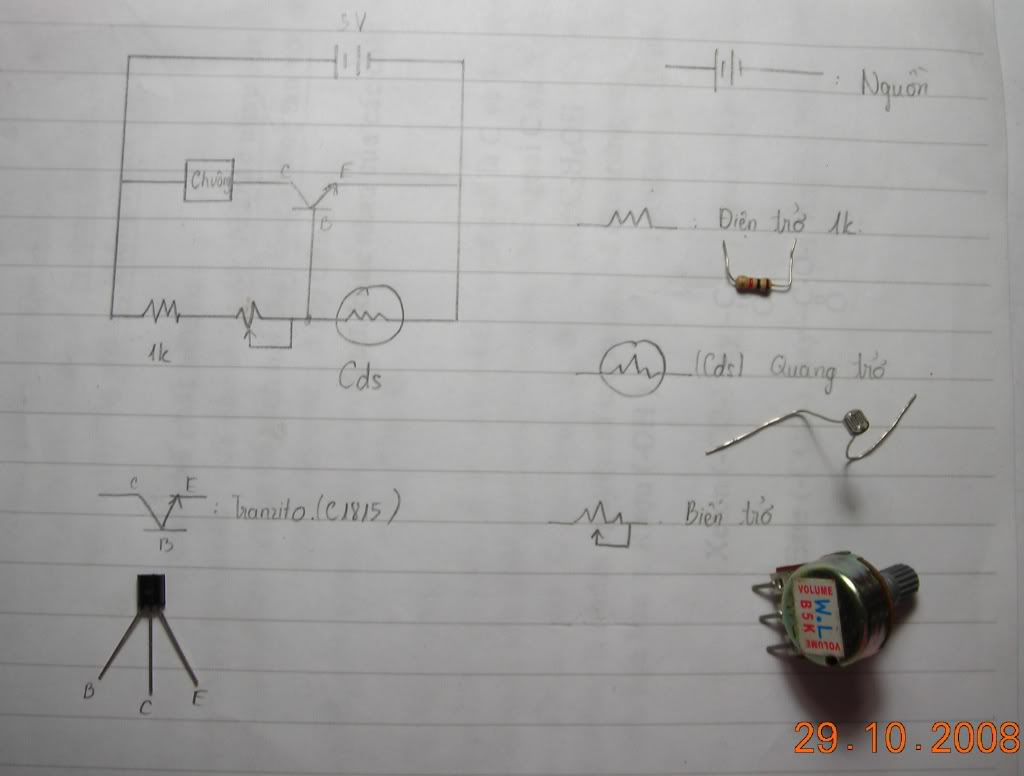 5V
: Nguồn
Chuông
C
E
B
: Điện trở 1k.
1k
Cds
(Cds) Quang trở
C
E
B
: Tranzito.(C1815)
Biến trở
B
C
E
VOLUME
W.L
B5K
VOLUME
29.10.2008